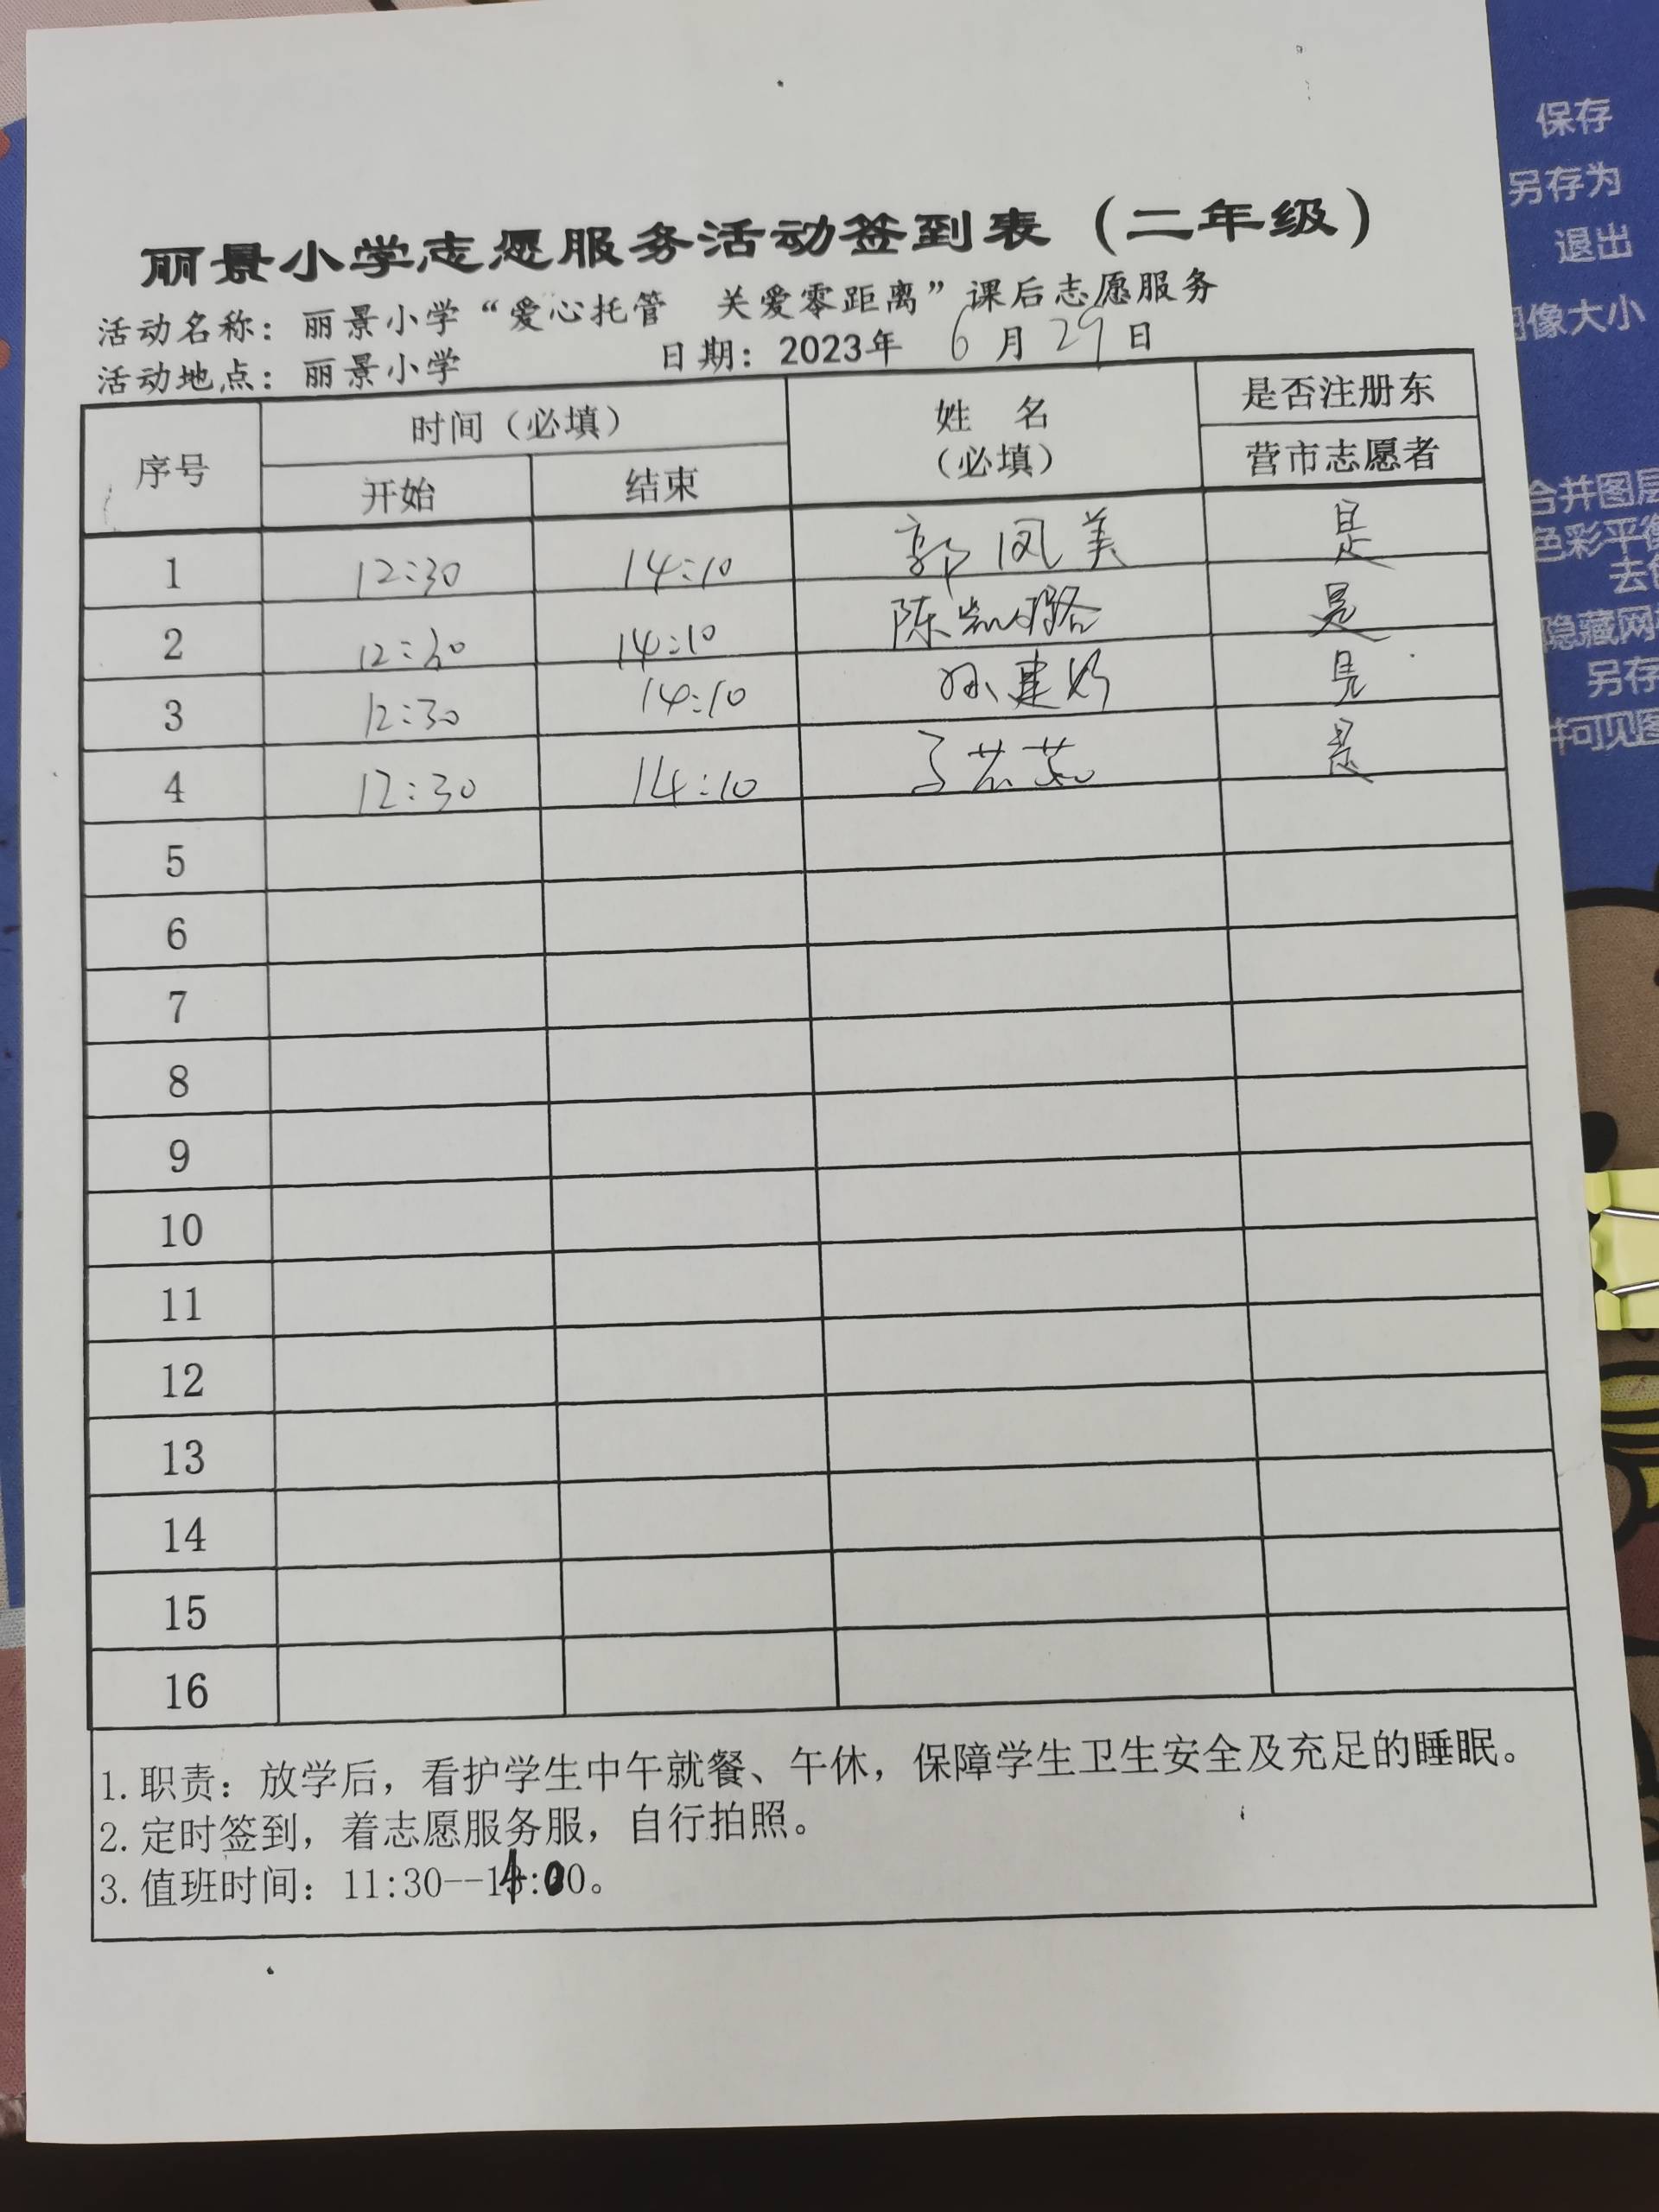 丽景小学志愿服务活动签到表（二年级）
活动名称：丽景小学“爱心托管 关爱零距离”课后志愿服务
活动地点：丽景小学 日期：2023年 6月29日
序号 时间（必填） 姓 名（必填） 是否注册东营市志愿者
开始 结束
1 12:30 14:10 郭凤美 是
2 12:30 14:10 陈凯璐 是
3 12:30 14:10 孙建 是
4 12:30 14:10 是
5
6
7
8
9
10
11
12
13
14
15
16
1.职责：放学后，看护学生中午就餐、午休，保障学生卫生安全及充足的睡眠。
2.定时签到，着志愿服务服，自行拍照。
3.值班时间：11:30--14:00。
保存
另存为
退出
图像大小
合并图层
色彩平衡
去色
隐藏网
另存
并可见图